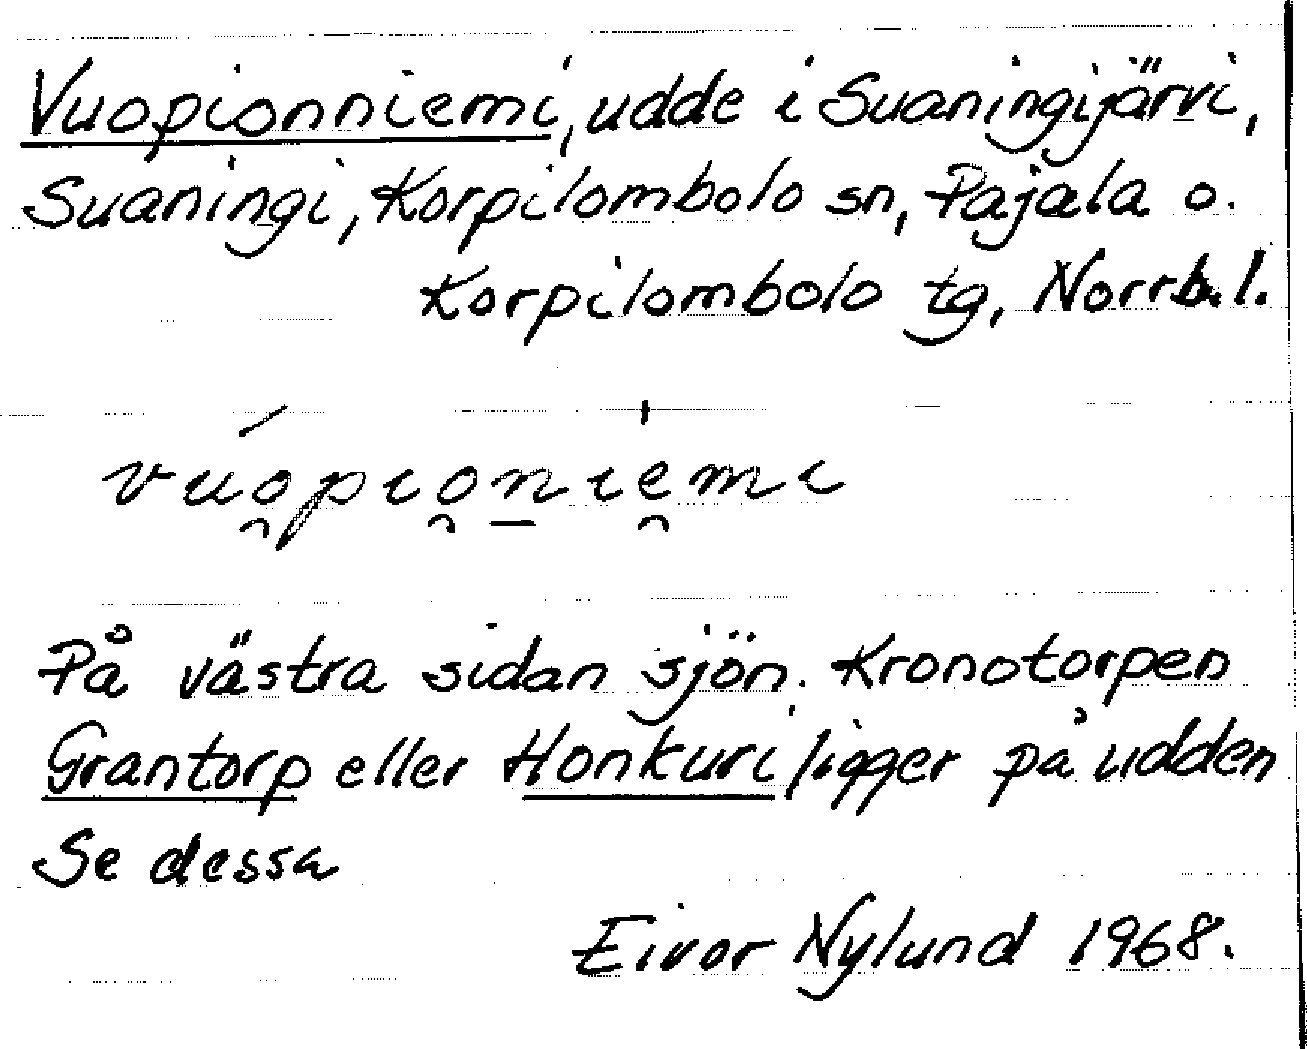 Vuopionniemi, udde i Suaningijärvi,
Suaningi, Korpilombolo sn, Pajala o.
Korpilombolo tg, Norrb.l.
vúo̯pio̯ni̯e̯mi
På västra sidan sjön. Kronotorpen
Grantorp eller Honkuri ligger på udden
Se dessa
Eivor Nylund 1968.